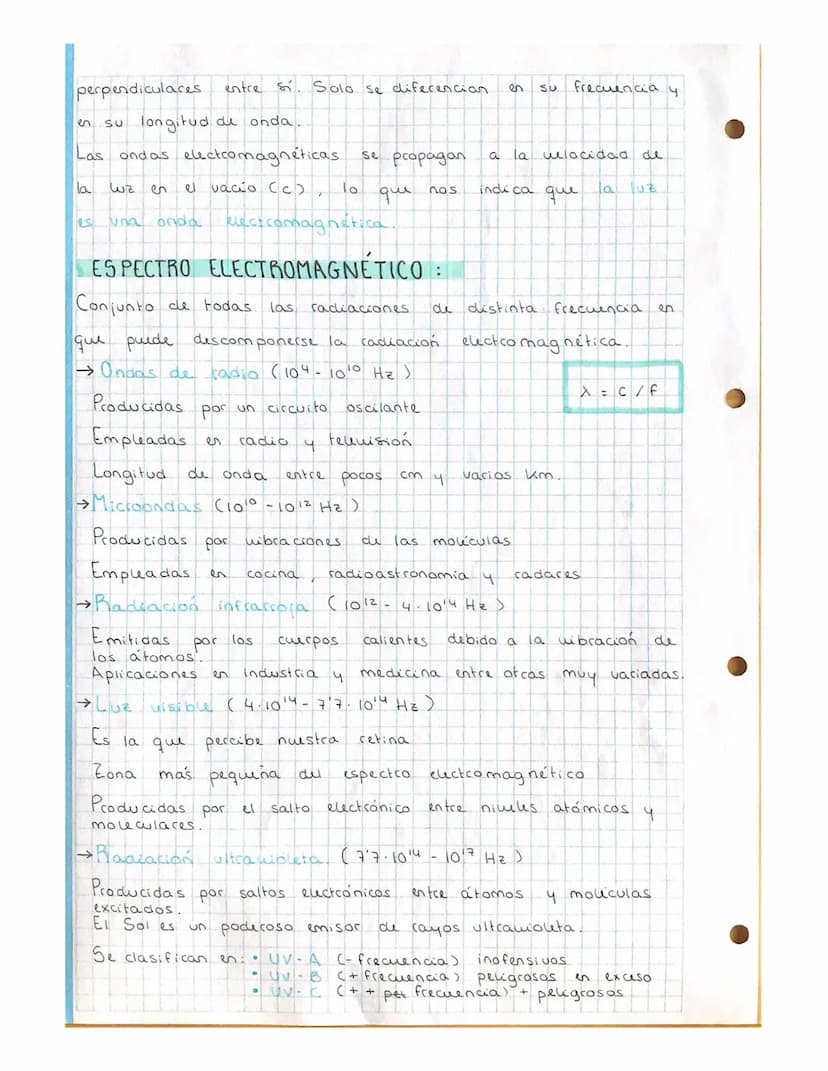 perpendiculares entre sí. Solo se diferencian en su frecuencia y
en su longitud de onda.
Las ondas electromagnéticas se propagan a la velocidad de
la luz en el vacío (c), lo que nos indica que la luz
es una onda electromagnética.
ESPECTRO ELECTROMAGNÉTICO :
Conjunto de todas las radiaciones de distinta frecuencia en
que puede descomponerse la radiación electromagnética.
→ Ondas de radio (10⁴ - 10¹⁰ Hz)
λ = c / f
Producidas por un circuito oscilante
Empleadas en radio y televisión
Longitud de onda entre pocos cm y varios Km.
→ Microondas (10¹⁰ - 10¹² Hz)
Producidas por vibraciones de las moléculas
Empleadas en cocina, radioastronomía y radares
→ Radiación infrarroja (10¹² - 4·10¹⁴ Hz)
Emitidas por los cuerpos calientes debido a la vibración de
los átomos.
Aplicaciones en industria y medicina entre otras muy variadas.
→ Luz visible (4·10¹⁴ - 7'7·10¹⁴ Hz)
Es la que percibe nuestra retina
Zona más pequeña del espectro electromagnético
Producidas por el salto electrónico entre niveles atómicos y
moleculares.
→ Radiación ultravioleta (7'7·10¹⁴ - 10¹⁷ Hz)
Producidas por saltos electrónicos entre átomos y moléculas
excitados.
El Sol es un poderoso emisor de rayos ultravioleta.
Se clasifican en: • UV-A (- frecuencia) inofensivos
• UV-B (+ frecuencia) peligrosos en exceso
• UV-C (+ + frecuencia) + peligrosos